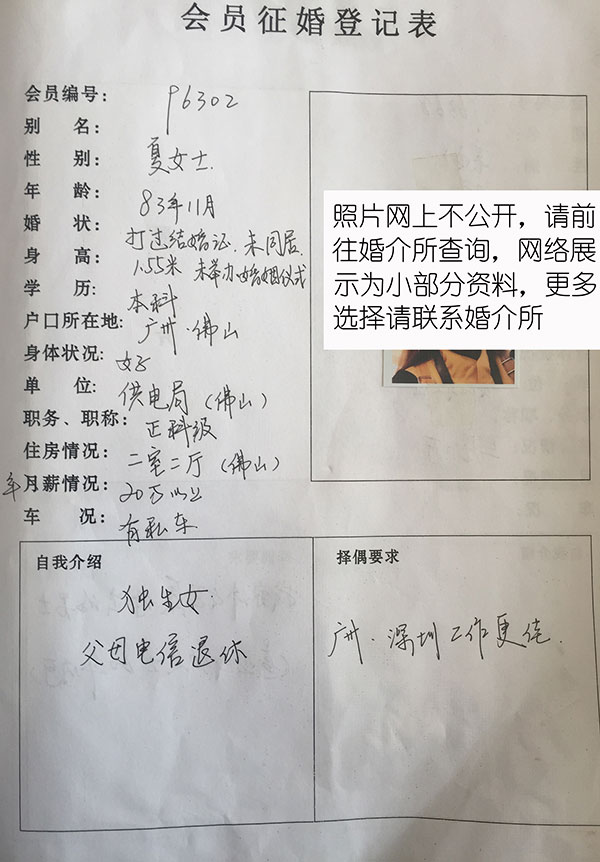 会员征婚登记表
会员编号: P6302
别 名:
性 别: 夏女士.
年 龄: 83年11月
婚 状: 打过结婚证、未同居、
身 高: 1.55米 未举办婚姻仪式
学 历: 本科
户口所在地: 广州·佛山
身体状况: 好
单 位: 供电局(佛山)
职务、职称: 正科级
住房情况: 二室二厅(佛山)
年月薪情况: 20万以上
车 况: 有私车
照片网上不公开，请前
往婚介所查询，网络展
示为小部分资料，更多
选择请联系婚介所
自我介绍
独生女
父母电信退休
择偶要求
广州·深圳工作更佳.